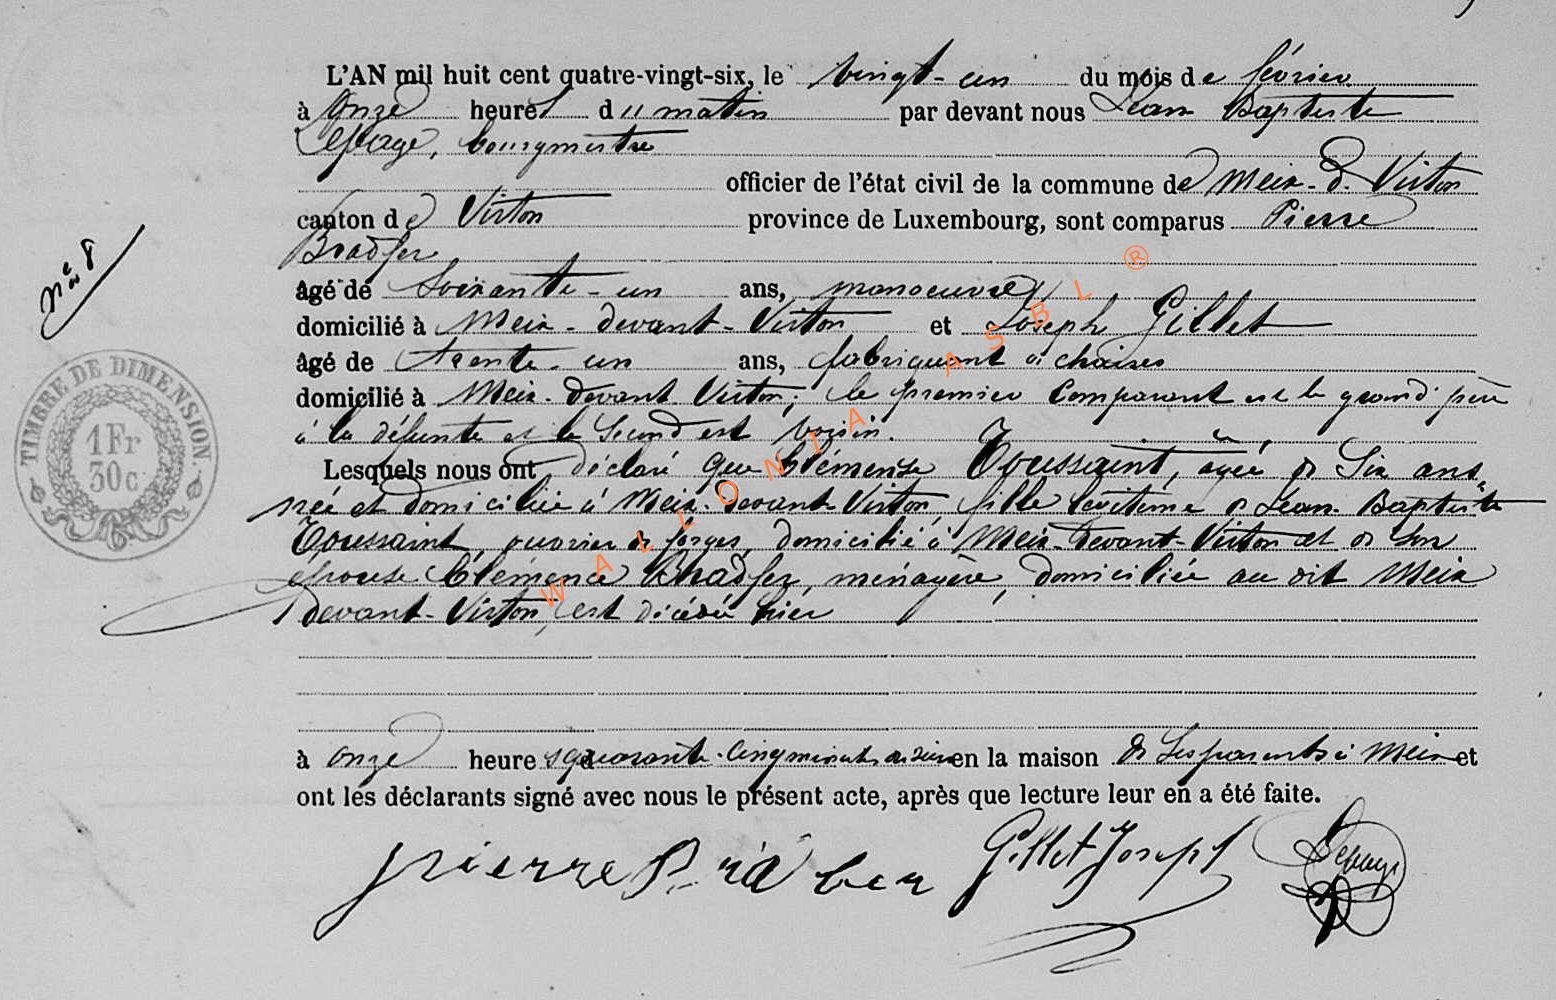 L'AN mil huit cent quatre-vingt-six, le vingt-un du mois de février
à onze heures du matin par devant nous Jean Baptiste
Lepage, bourgmestre
officier de l'état civil de la commune de Meix-d. Virton
canton de Virton province de Luxembourg, sont comparus Pierre
Bradfer
âgé de soixante-un ans, manoeuvre
nº 8
domicilié à Meix-devant-Virton et Joseph Gillet
âgé de trente-un ans, fabriquant à chaises
domicilié à Meix-devant Virton; le premier comparant est le grand père
à la défunte et le second est voisin.
Lesquels nous ont déclaré que Clémense Toussaint, agée de Six ans
née et domiciliée à Meix-devant-Virton, fille légitime de Jean-Baptiste
Toussaint, ouvrier de forges, domicilié à Meix-devant-Virton et de son
épouse Clémence Bradfer, ménagère, domiciliée au dit Meix
devant-Virton, est décédée hier
à onze heures quarante-cinq minutes en la maison de ses parents à Meix et
ont les déclarants signé avec nous le présent acte, après que lecture leur en a été faite.
pierre Gillet Joseph Lepage
TIMBRE DE DIMENSION.
1 Fr
30 c
WALLONIA ASBL ®